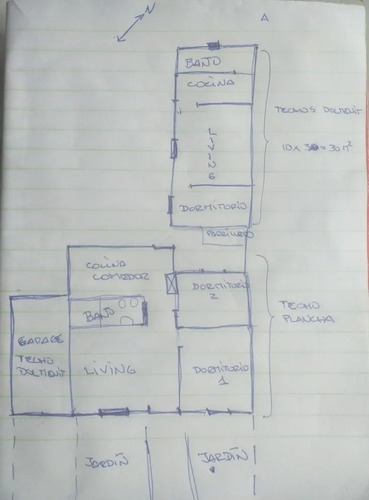 N
A
BAÑO
COCINA
TECHOS DOLMENIT
10 x 3 = 30 m²
LIVING
DORMITORIO
COCINA
COMEDOR
DORMITORIO
2
TECHO
PLANCHA
BAÑO
GARAGE
TECHO
DOLMENIT
LIVING
DORMITORIO
1
JARDÍN
JARDÍN